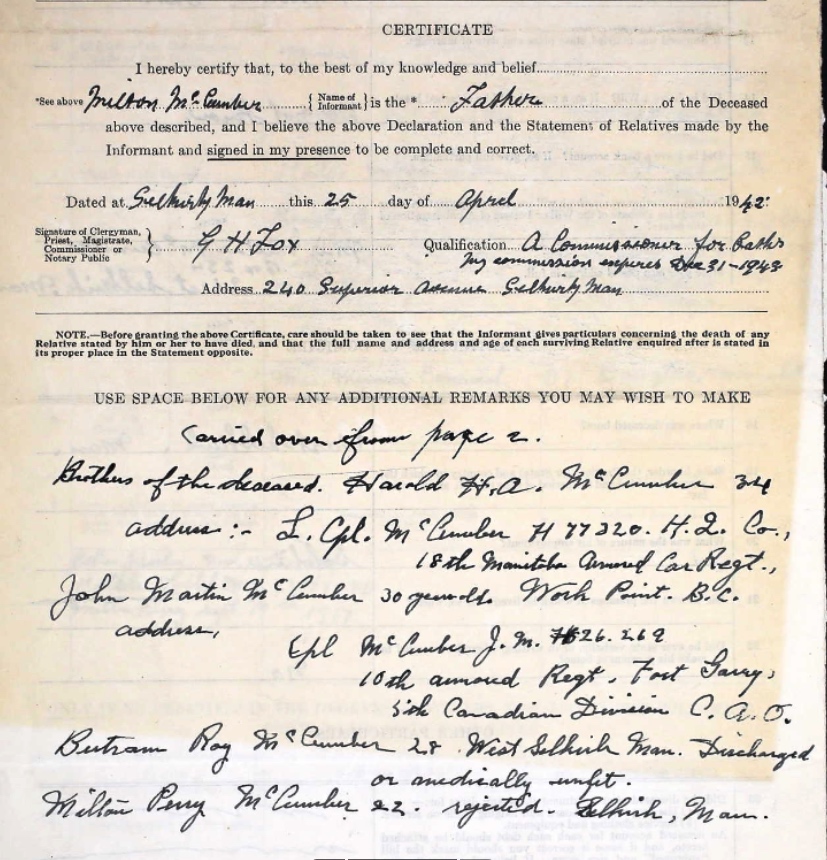 CERTIFICATE
I hereby certify that, to the best of my knowledge and belief
*See above Milton McCumber { Name of Informant } is the * Father of the Deceased
above described, and I believe the above Declaration and the Statement of Relatives made by the
Informant and signed in my presence to be complete and correct.
Dated at Selkirk Man this 25 day of April 1942
Signature of Clergyman, Priest, Magistrate, Commissioner or Notary Public } G H Fox Qualification A Commissioner for Oaths
My commission expires Dec 31-1943
Address 240 Superior Avenue Selkirk Man
NOTE.—Before granting the above Certificate, care should be taken to see that the Informant gives particulars concerning the death of any
Relative stated by him or her to have died, and that the full name and address and age of each surviving Relative enquired after is stated in
its proper place in the Statement opposite.
USE SPACE BELOW FOR ANY ADDITIONAL REMARKS YOU MAY WISH TO MAKE
Carried over from page 2.
Brothers of the deceased. Harold H. A. McCumber 34
address:- L. Cpl. McCumber H 77320. H. Q. Co.,
18th Manitoba Armored Car Regt.,
John Martin McCumber 30 years old. Work Point. B.C.
address,
Cpl McCumber J. M. H26.269
10th armored Regt, Fort Garry,
5th Canadian Division C. A. O.
Bertram Roy McCumber 28 West Selkirk Man. Discharged
or medically unfit.
Milton Perry McCumber 22. rejected. Selkirk, Man.